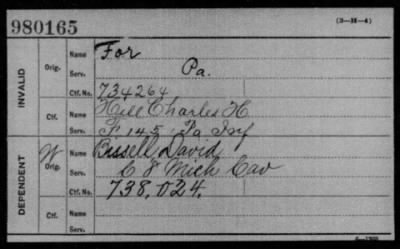 980165 (3-M-4)
INVALID
Orig. Name For
Serv. Pa.
Ctf. No. 734264
Ctf. Name Hill Charles H
Serv. F. 145 Pa Inf
DEPENDENT
W Orig. Name Bissell, David
Serv. C 8 Mich Cav
Ctf. No. 738,024.
Ctf. Name
Serv.